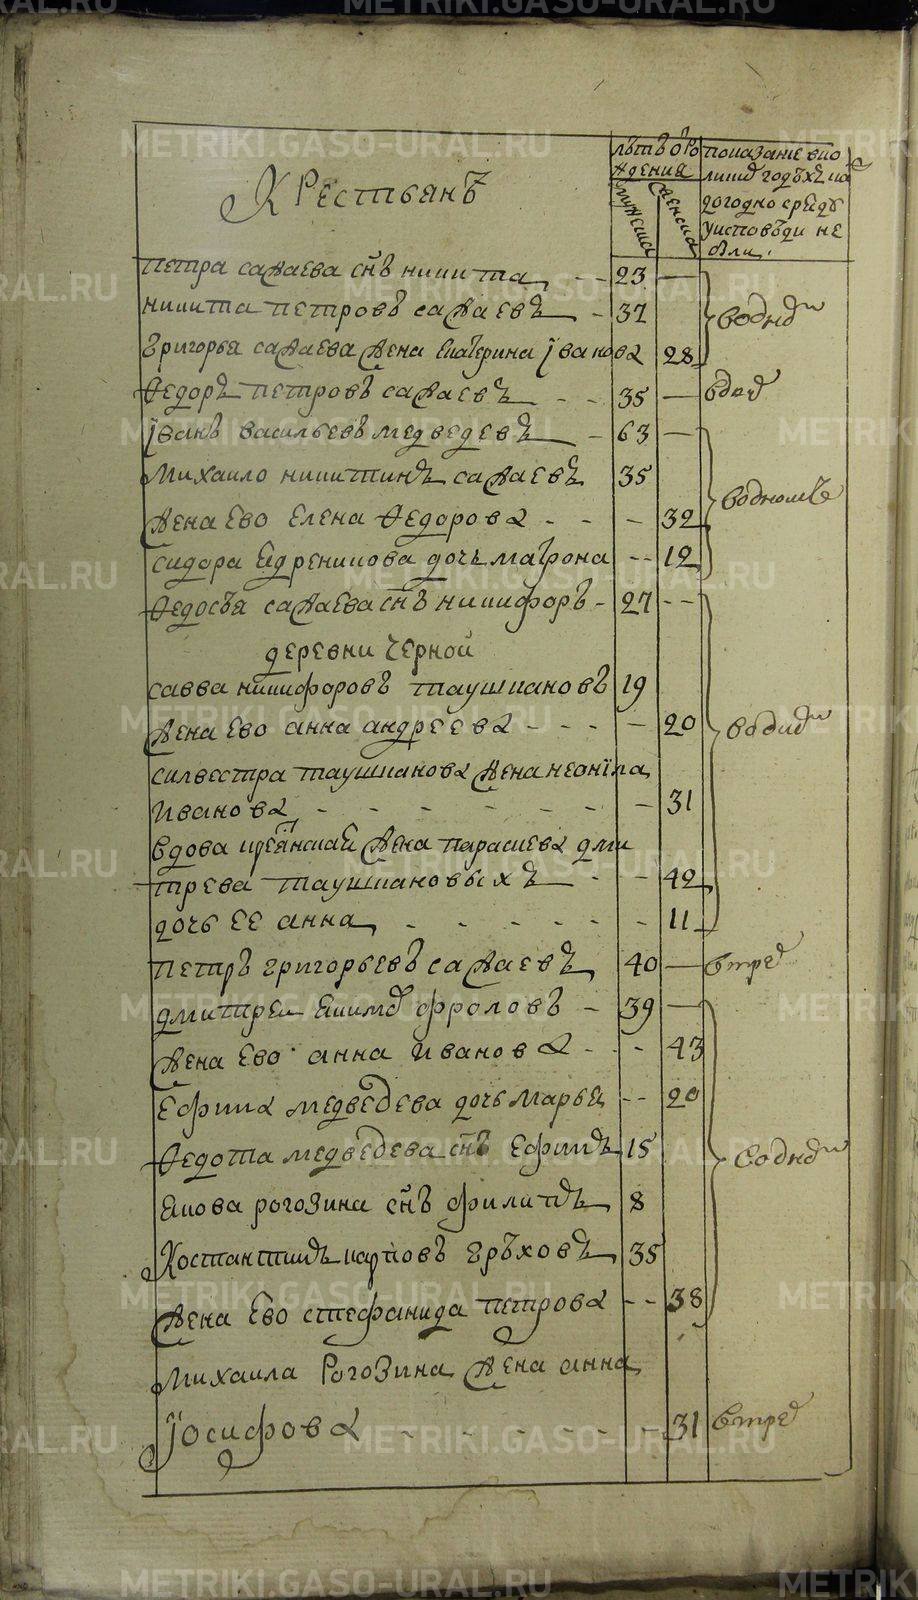 METRIKI.GASO-URAL.RU
Крестьянъ
лѣтъ о͡тъ ро
ждения
мужеска
женска
показание ско
годъхъ ка
догодно средъ
уисповѣди не
были.
Петра салаева сн҃ъ никита - - 23 —
никита петровъ салаевъ - 37
Григорья салаева жена екатерина Ївановα 28
Ѳедоръ петровъ салаевъ - - 35 —
Їванъ васильевъ медведевъ - 63 —
Михаило никитинъ салаевъ 35
Жена Ево елена Ѳедоровα - - - 32
дочь матрона - - 12
Ѳедосѣя салаева сн҃ъ никифоръ - 27 - -
деревни черной
савва никифоровъ таушкановъ 19
Жена Ево анна андреевα - - - - 20
силвестра таушкановα жена неонїла
Ивановα - - - - - - - 31
вдова жена параскевα дми
трева таушкановыхъ - - 42
дочь ее анна - - - - - - 11
Петръ григорьевъ салаевъ 40 —
дмитреи екимовъ фроловъ - 39 —
Жена Ево анна Ивановα - - - 43
Ефимα медведева дочь марья - - 20
Ѳедота медведева сн҃ъ Ефимъ 15
Якова рогозина сн҃ъ филипъ 8
Костантинъ карповъ грѣховъ 35
Жена Ево стефанида петровα - - 38
Михаила Рогозина Жена анна
Їосифовα - - - - - - 31
водном
водномъ
водном
втрех
водном
втрех